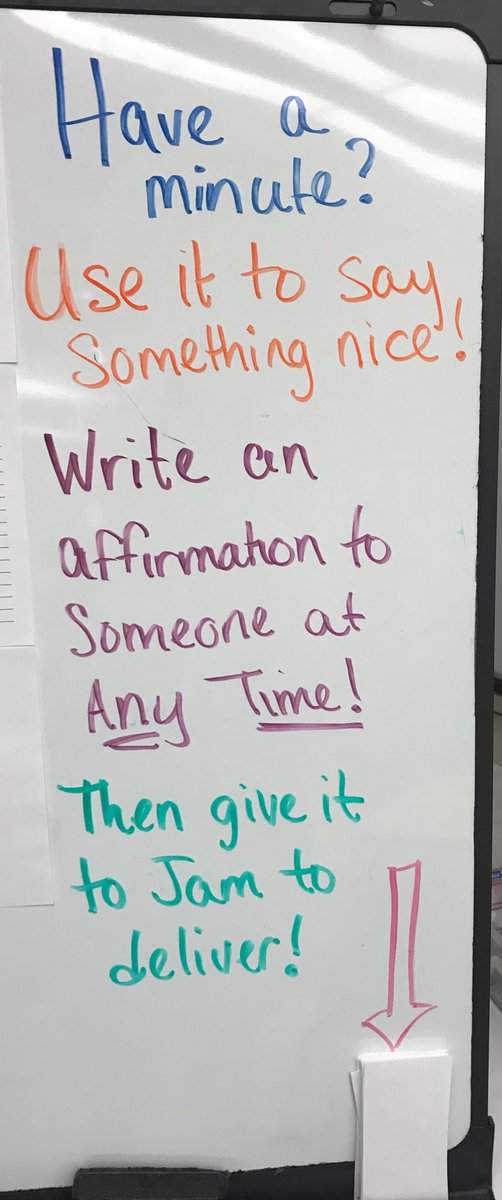 Have a
minute?
Use it to say
Something nice!
Write an
affirmation to
Someone at
Any Time!
Then give it
to Jam to
deliver!